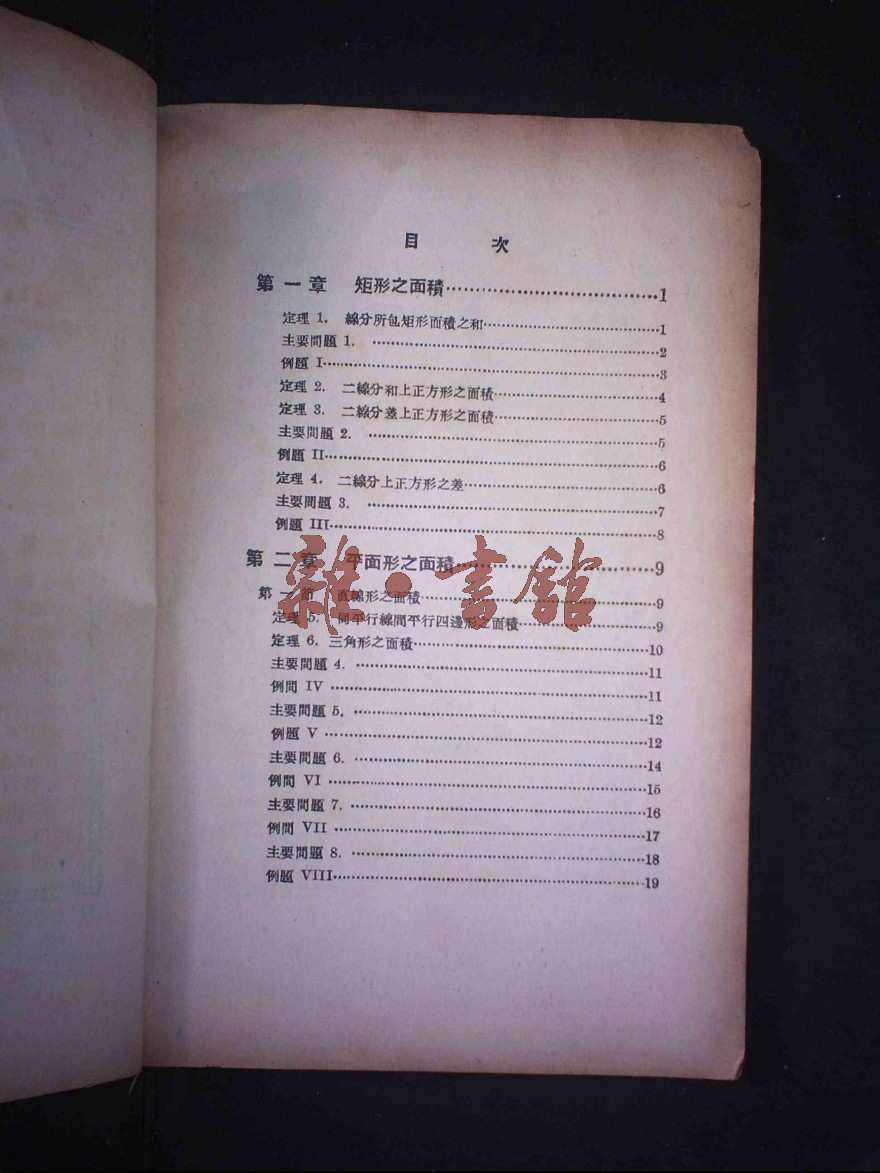 目 次
第一章 矩形之面積……1
定理 1. 線分所包矩形面積之和……1
主要問題 1. ……2
例題 I……3
定理 2. 二線分和上正方形之面積……4
定理 3. 二線分差上正方形之面積……5
主要問題 2. ……5
例題 II……6
定理 4. 二線分上正方形之差……6
主要問題 3. ……7
例題 III……8
第二章 平面形之面積……9
第一節 直線形之面積……9
定理 5. 同平行線間平行四邊形之面積……9
定理 6. 三角形之面積……10
主要問題 4. ……11
例問 IV ……11
主要問題 5. ……12
例題 V ……12
主要問題 6. ……14
例問 VI ……15
主要問題 7. ……16
例問 VII ……17
主要問題 8. ……18
例題 VIII……19
雜·書館